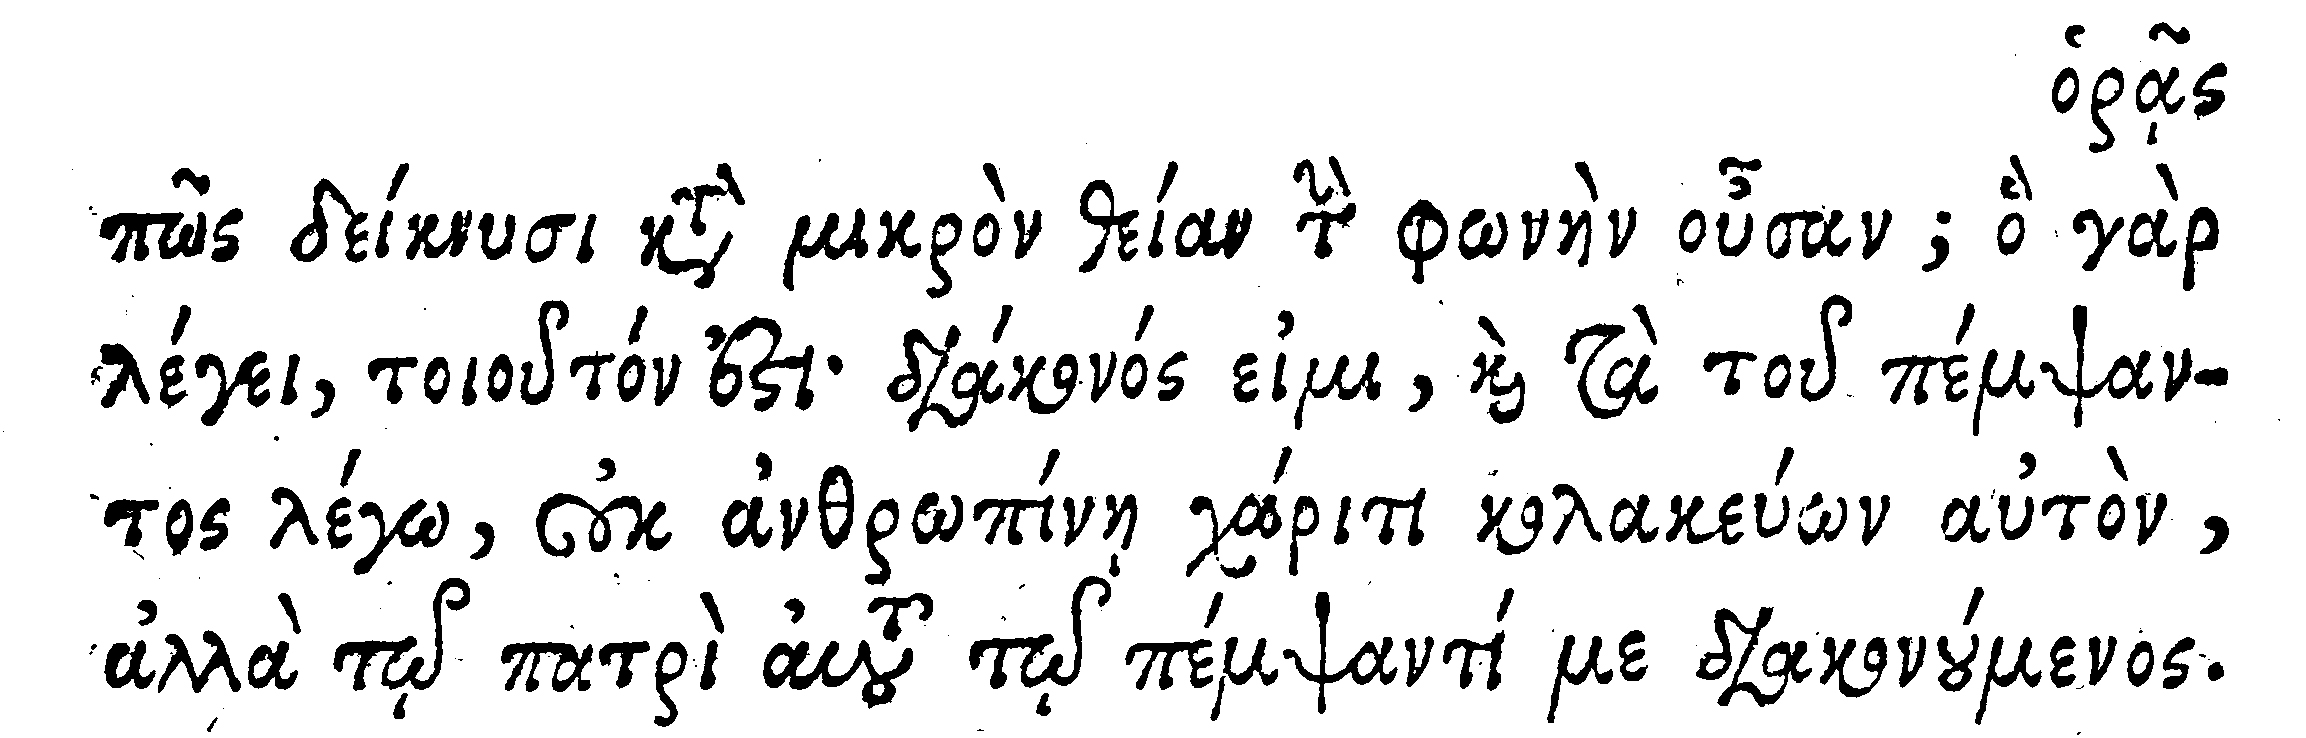 ὁρᾷς
πῶς δείκνυσι κατὰ μικρὸν θείαν τὴν φωνὴν οὖσαν; ὃ γὰρ
λέγει, τοιοῦτόν ἐστι· διάκονός εἰμι, καὶ τὰ τοῦ πέμψαν-
τος λέγω, οὐκ ἀνθρωπίνῃ χάριτι κολακεύων αὐτὸν,
ἀλλὰ τῷ πατρὶ αὐτοῦ τῷ πέμψαντί με διακονούμενος.